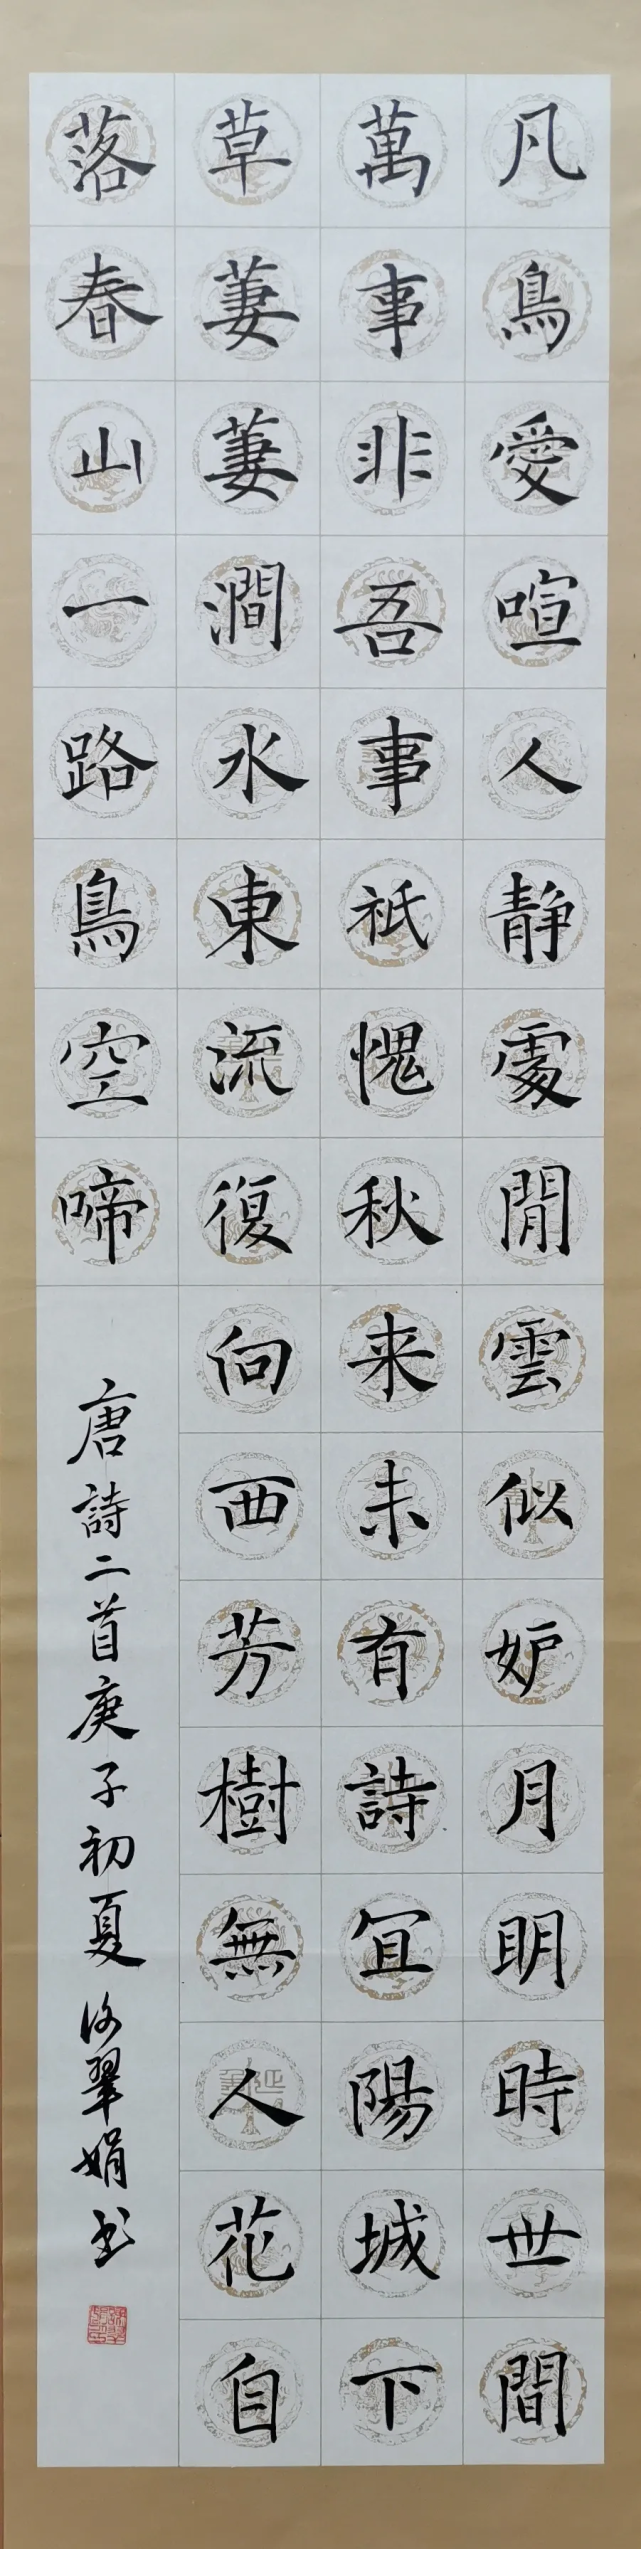 凡鳥愛喧人靜處閒雲似妒月明時世間
萬事非吾事祇愧秋来未有詩宜陽城下
草萋萋澗水東流復向西芳樹無人花自
落春山一路鳥空啼
唐詩二首庚子初夏翠娟书